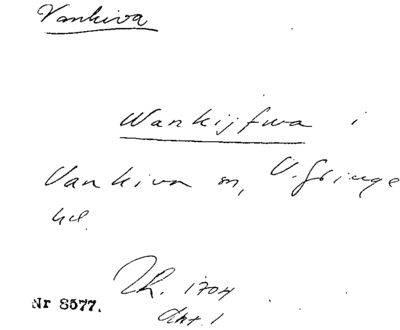 Vankiva
Wankijfwa i
Vankiva sn, V. Göinge
hd.
Th. 1704
Akt. 1
Nr 8577.